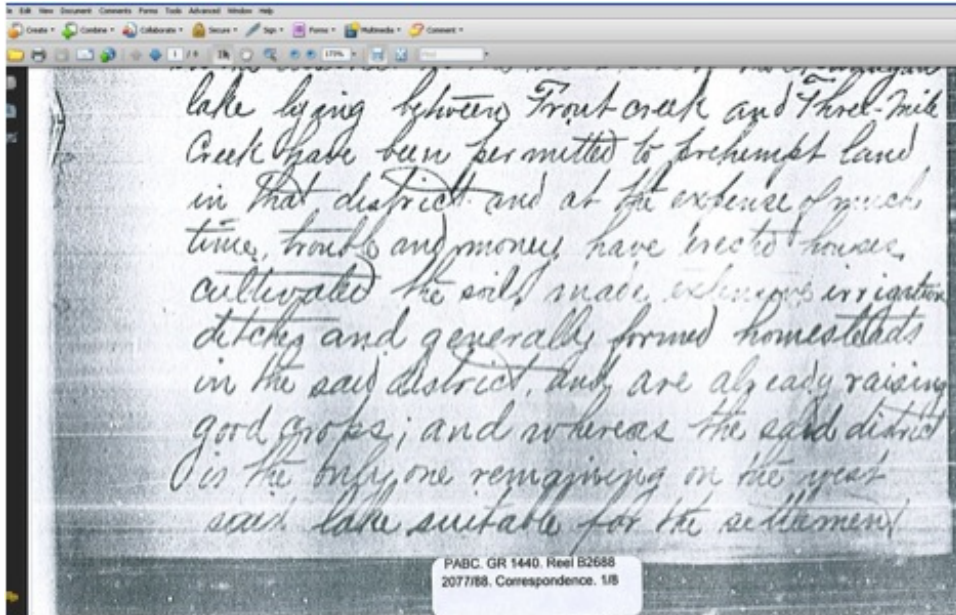 Edit View Document Comments Forms Tools Advanced Window Help
Create Combine Collaborate Secure Sign Forms Multimedia Comment
1 / 8 175% Find
lake lying between Trout creek and Three-Mile
Creek have been permitted to prehempt land
in that district and at the expense of much
time, trouble and money have erected houses,
cultivated the soil, made extensive irrigation
ditches and generally formed homesteads
in the said district, and are already raising
good crops; and whereas the said district
is the only one remaining on the west
said lake suitable for the settlement
PABC. GR 1440. Reel B2688
2077/88. Correspondence. 1/8